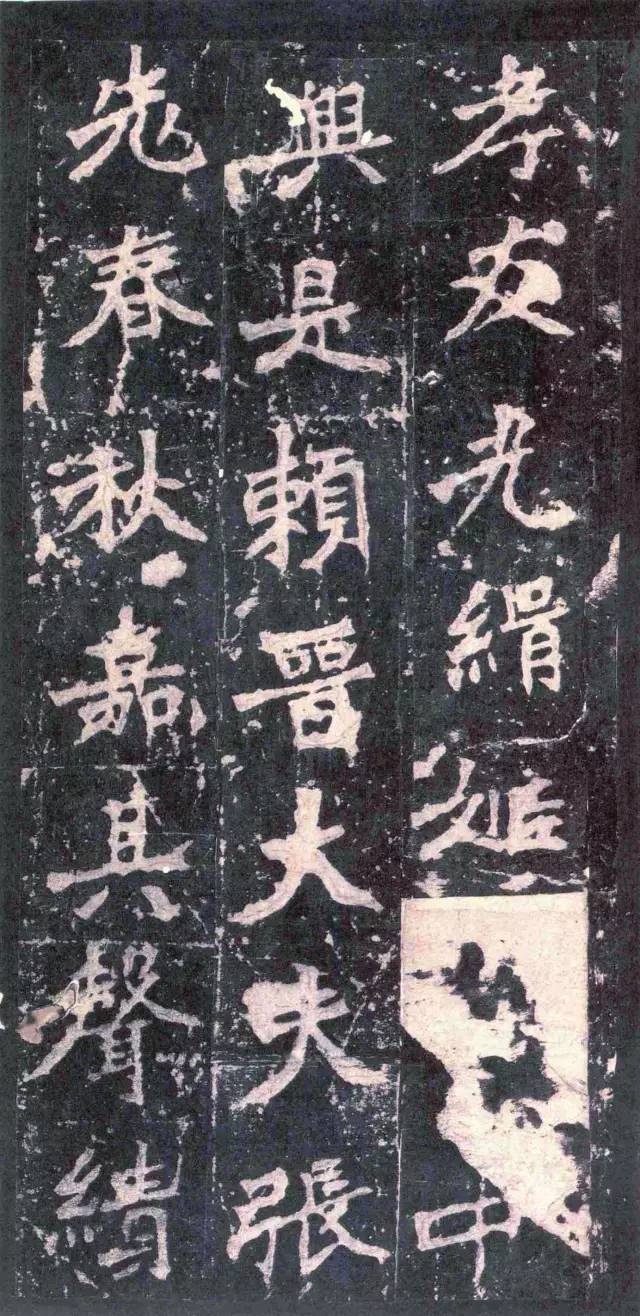 孝友光緝姬中
興是賴晉大夫張
老春秋嘉其聲績